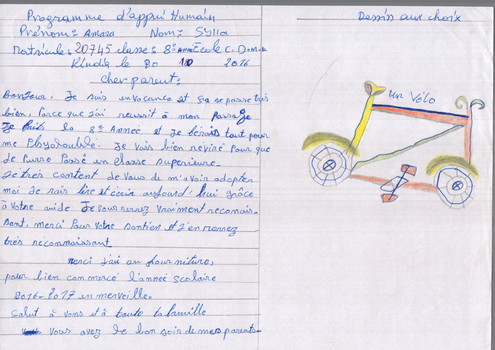 Programme d'appui Humain
Prénom: Amara Nom: Sylla
Matricule: 20745 classe: 8e année Ecole C.D.M.
Kindia le 20 10 2016
Cher parent:
Bonjour. Je suis en vacance et ça se passe très
bien. Parce que j'ai reussit à mon passage
Je suis la 8e Année et je ferais tout pour
me Je vais bien reviré pour que
Je Purre Passé en classe superieure.
Je très content de vous de m'avoir adopter
moi Je sais lire et ecrir aujourd'hui grâce
à votre aide Je vous verrez vraiment reconnais-
sant. merci Pour votre Santien et J'en
très reconnaissant
merci j'ai au fourniture,
pour bien commercé l'année scolaire
2016-2017 en merveille.
salut à vous et à toute ta famille
vous avez le bon soir de mes parents.
Dessin aux choix
un Vélo